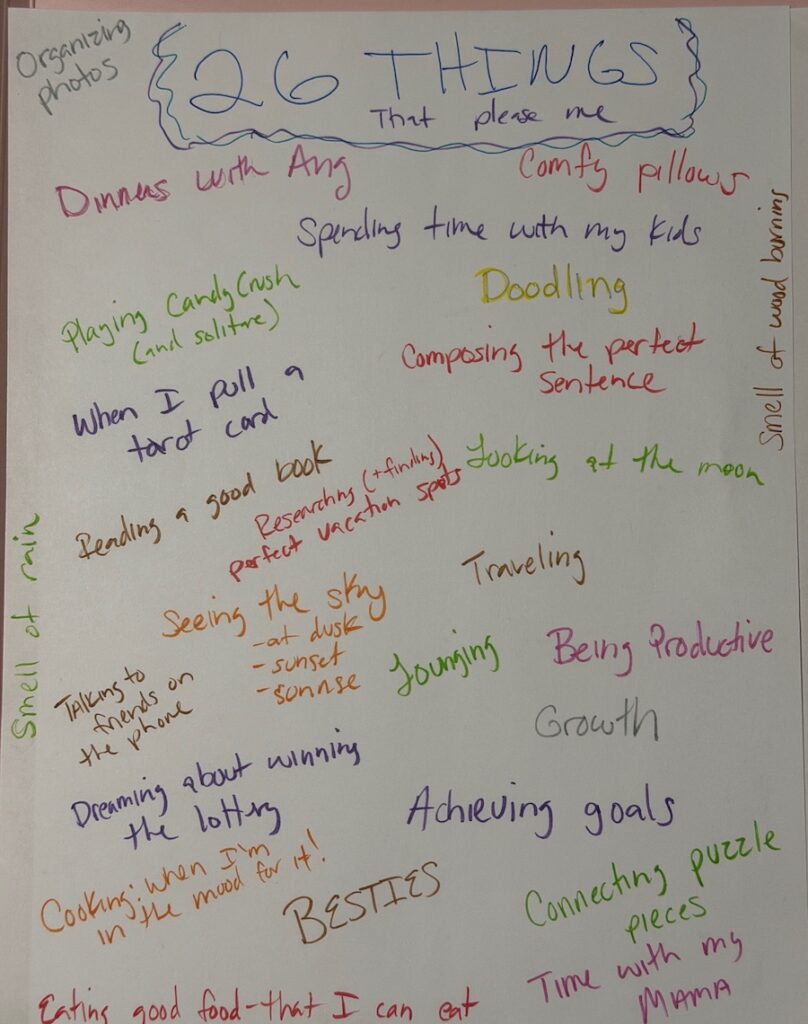 Organizing
photos
26 THINGS
That please me
Dinners with Ang
Comfy pillows
Spending time with my kids
Smell of wood burning
Playing Candy Crush
(and solitare)
Doodling
Composing the perfect
sentence
When I pull a
tarot card
Reading a good book
Researching (+finding)
perfect vacation spots
Looking at the moon
Smell of rain
Traveling
Seeing the sky
-at dusk
-sunset
-sunrise
Lounging
Being Productive
Talking to
friends on
the phone
Growth
Dreaming about winning
the lottery
Achieving goals
Cooking: when I'm
in the mood for it!
BESTIES
Connecting puzzle
pieces
Time with my
MAMA
Eating good food-that I can eat